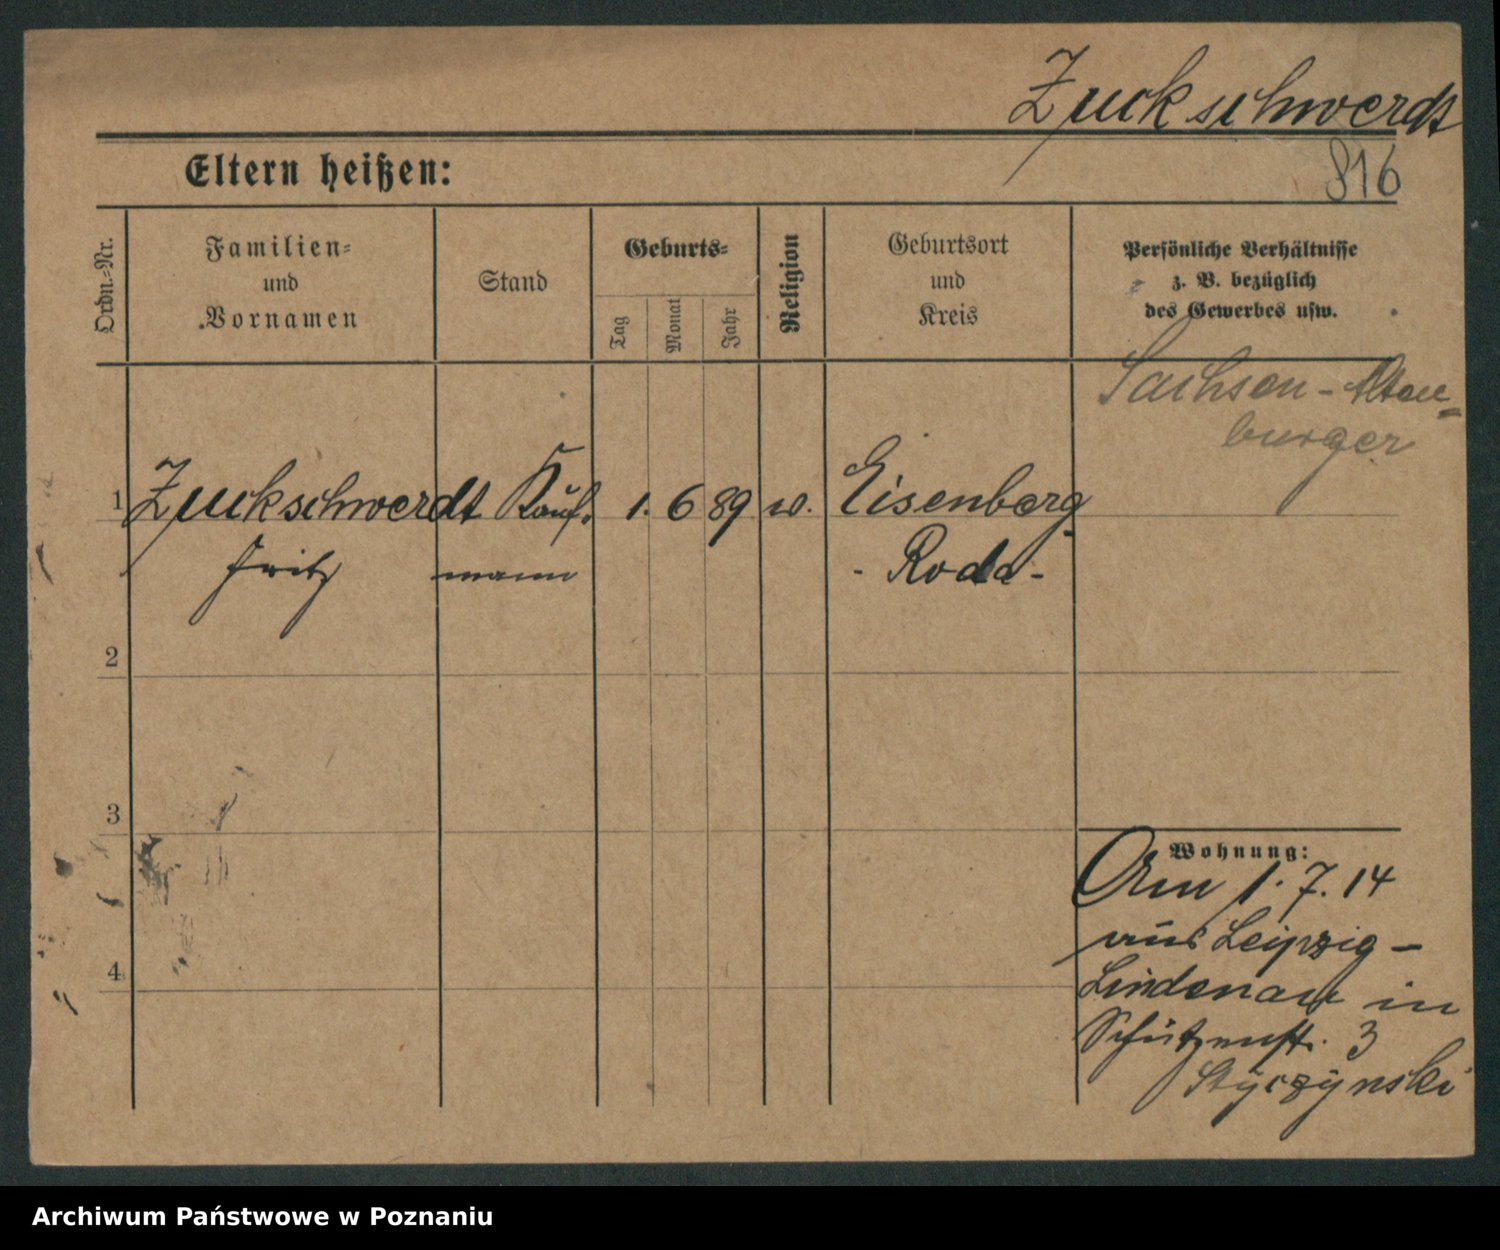 Zuckschwerdt
Eltern heißen:
816
Ordn.-Nr.
Familien-
und
Vornamen
Stand
Geburts-
Tag
Monat
Jahr
Religion
Geburtsort
und
Kreis
Persönliche Verhältnisse
z. B. bezüglich
des Gewerbes usw.
Sachsen-Alten-
burger
1 Zuckschwerdt Kauf- 1. 6 89 Eisenberg
Fritz mann - Roda -
2
3
4
Wohnung:
Am 1. 7. 14
aus Leipzig-
Lindenau in
Schützenstr. 3
Styczynski
Archiwum Państwowe w Poznaniu